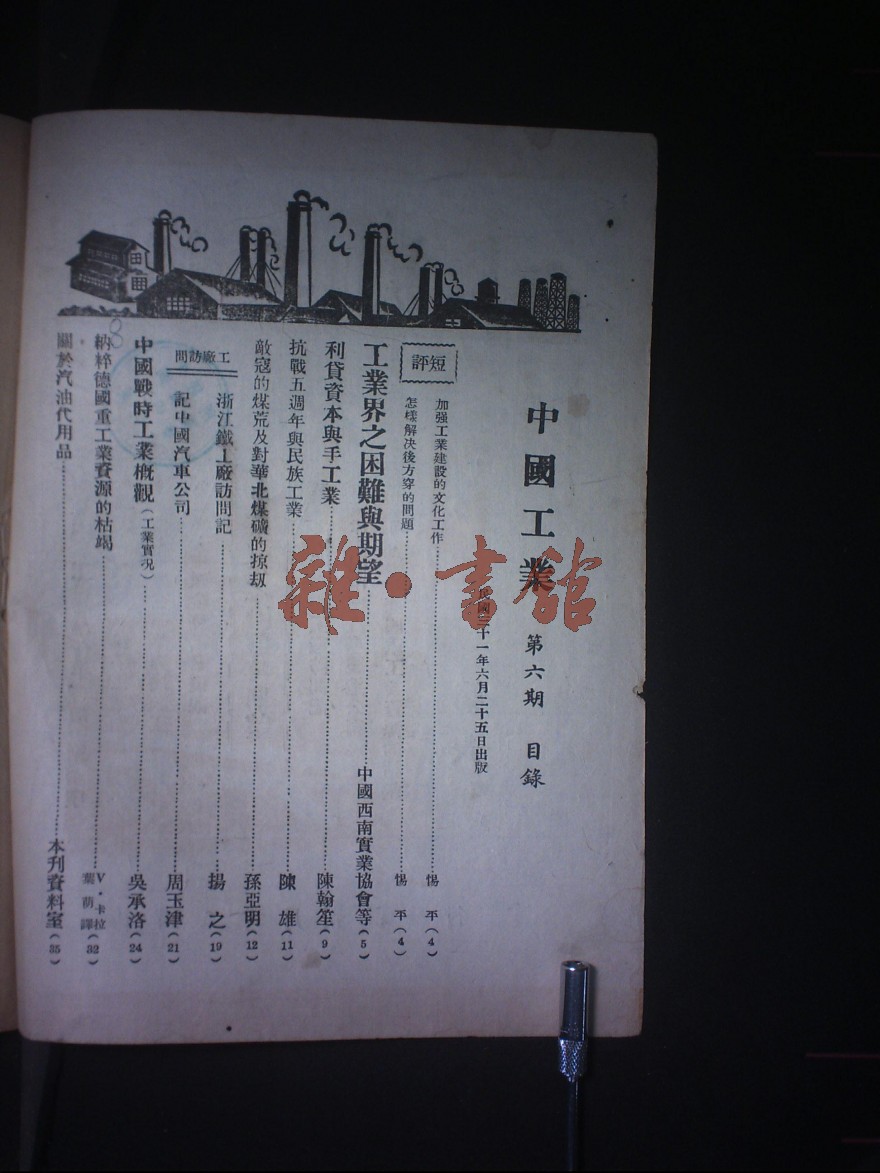 中國工業 第六期 目錄
民國三十一年六月二十五日出版
短評
加強工業建設的文化工作……惕 平(4)
怎樣解決後方穿的問題……惕 平(4)
工業界之困難與期望……中國西南實業協會等(5)
利貸資本與手工業……陳翰笙(9)
抗戰五週年與民族工業……陳 雄(11)
敵寇的煤荒及對華北煤礦的掠刼……孫亞明(12)
工廠訪問
浙江鐵工廠訪問記……揚 之(19)
記中國汽車公司……周玉津(21)
中國戰時工業概觀(工業實況)……吳承洛(24)
納粹德國重工業資源的枯竭……V·卡拉 葉蔭譯(32)
關於汽油代用品……本刊資料室(35)
雜·書館